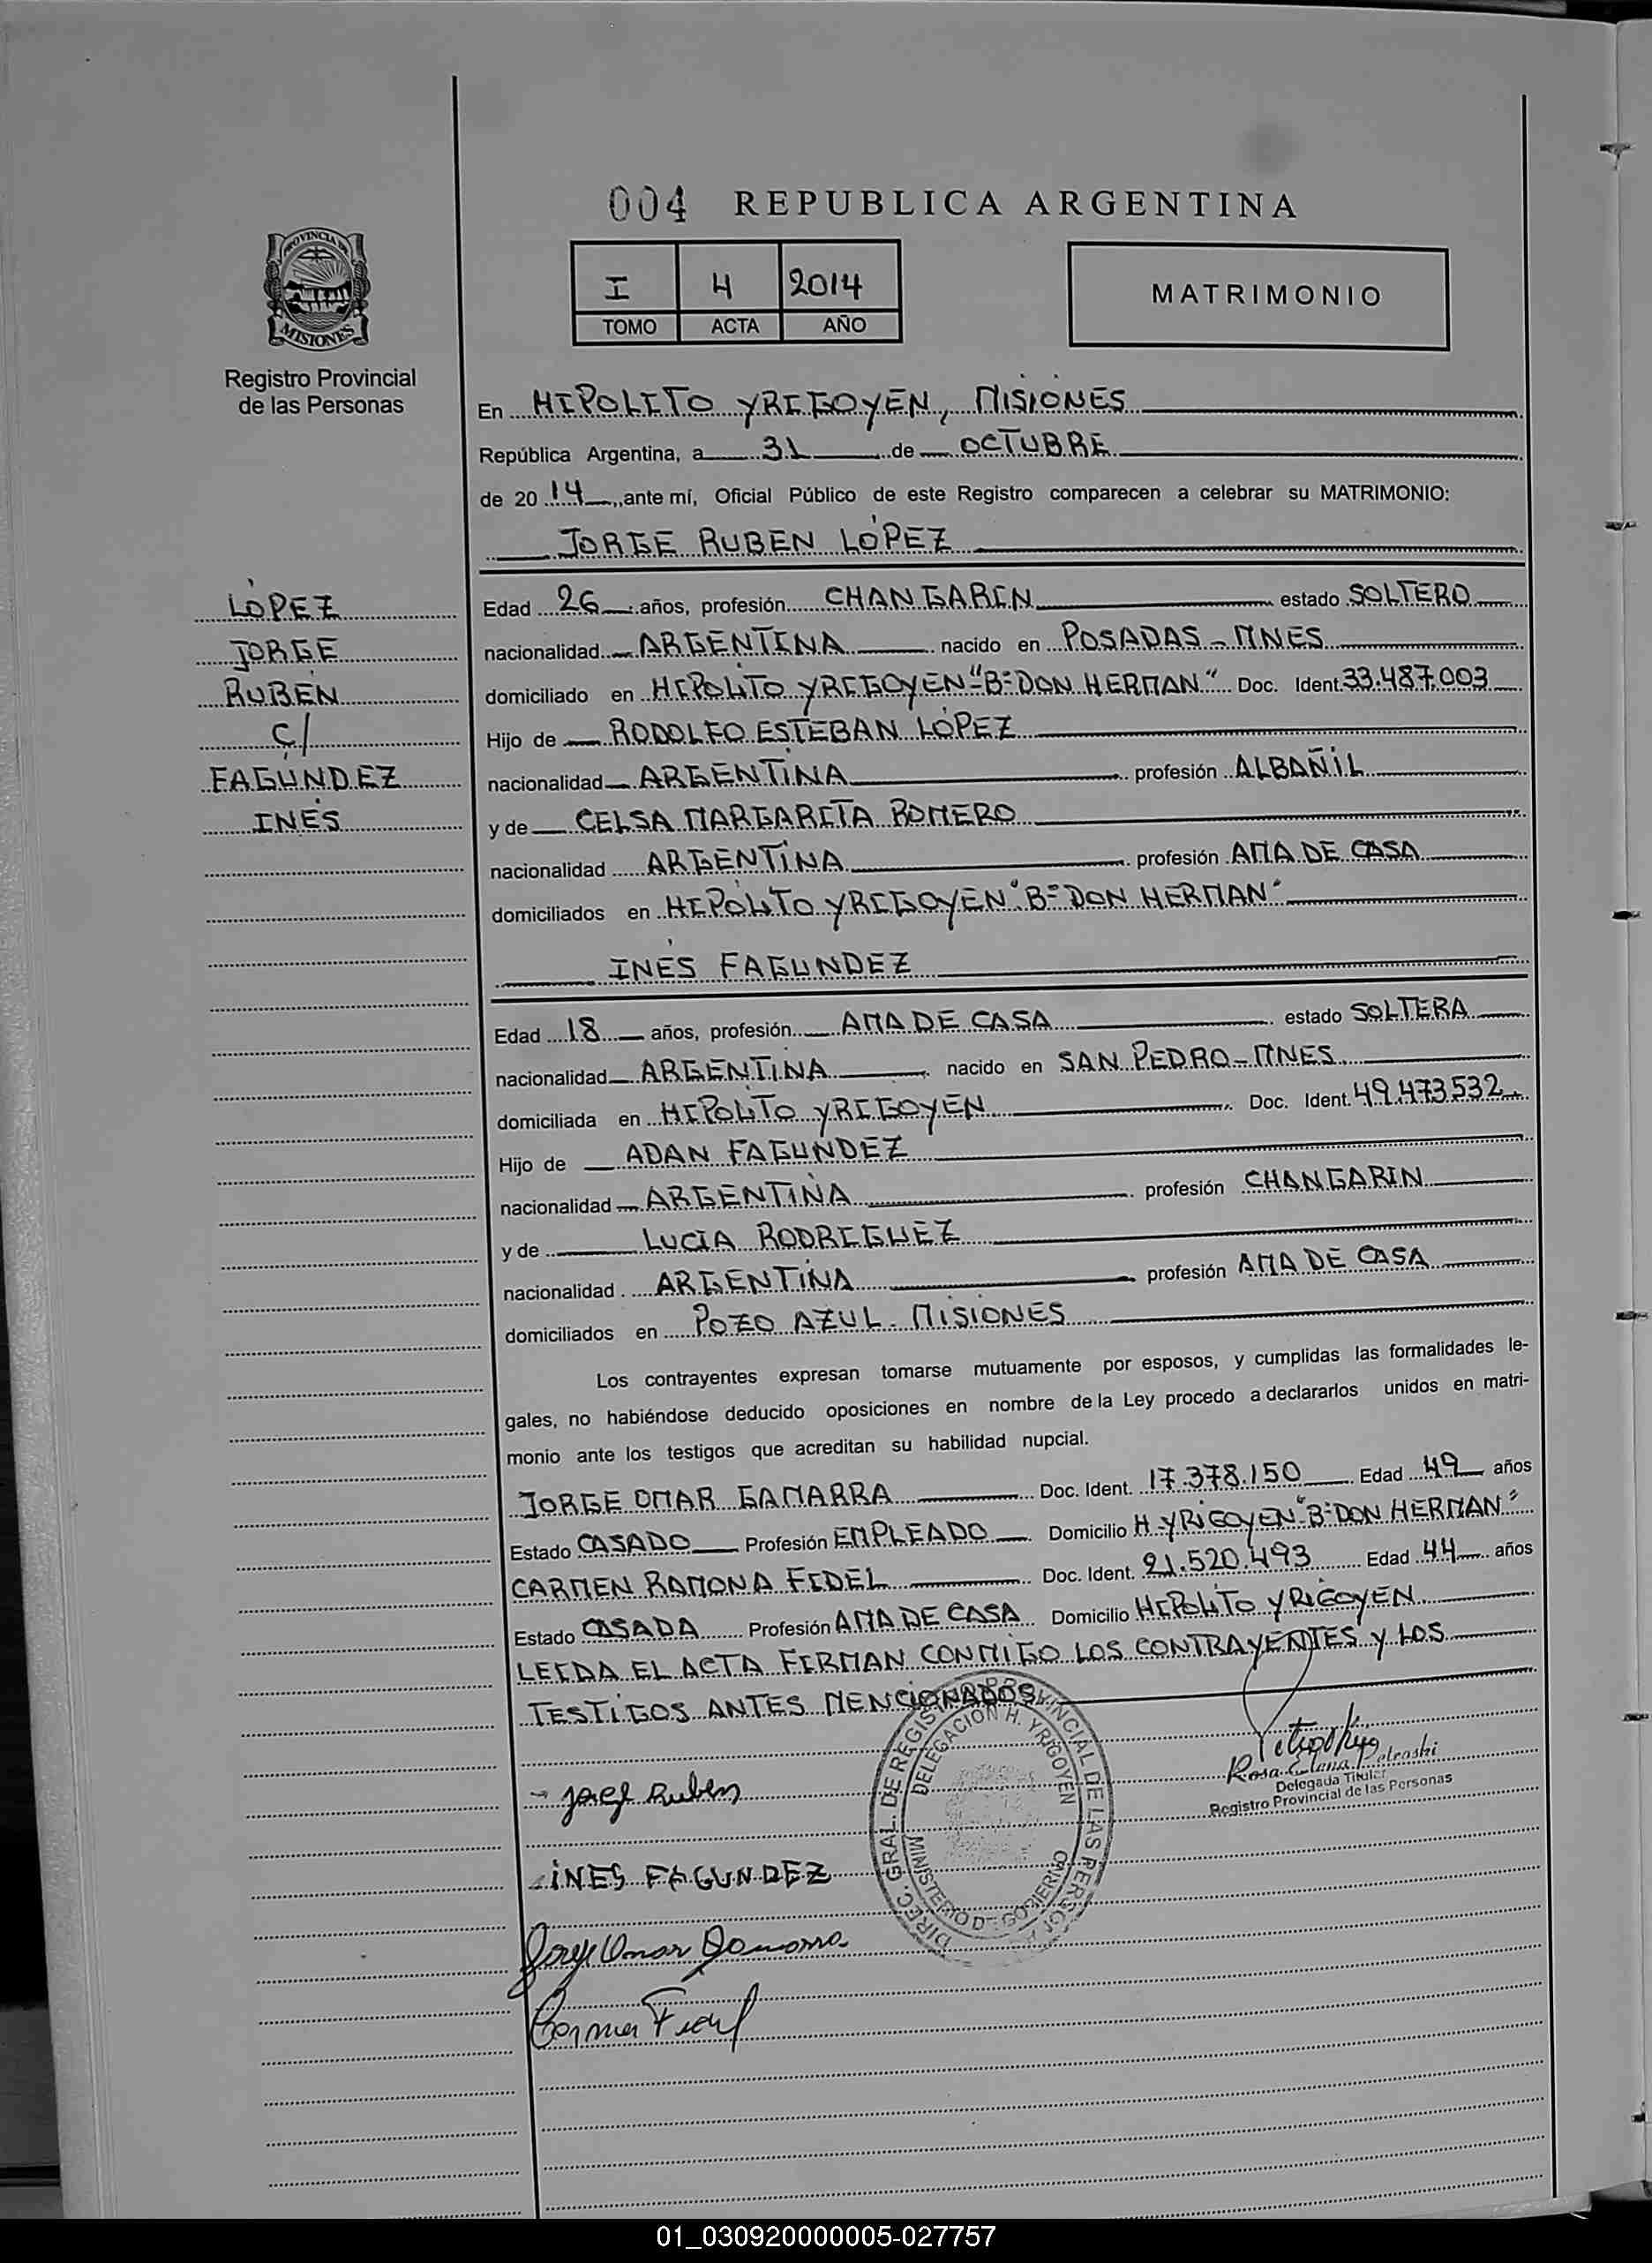 004 REPUBLICA ARGENTINA
I 4 2014
TOMO ACTA AÑO
MATRIMONIO
PROVINCIA DE
MISIONES
Registro Provincial
de las Personas
En HIPOLITO YRIGOYEN, MISIONES
República Argentina, a 31 de OCTUBRE
de 2014, ante mí, Oficial Público de este Registro comparecen a celebrar su MATRIMONIO:
JORGE RUBEN LÓPEZ
LÓPEZ
JORGE
RUBÉN
C/
FAGÚNDEZ
INÉS
Edad 26 años, profesión CHANGARIN estado SOLTERO
nacionalidad ARGENTINA nacido en POSADAS - MNES
domiciliado en HIPOLITO YRIGOYEN "Bº DON HERMAN" Doc. Ident. 33.487.003
Hijo de RODOLFO ESTEBAN LÓPEZ
nacionalidad ARGENTINA profesión ALBAÑIL
y de CELSA MARGARITA ROMERO
nacionalidad ARGENTINA profesión AMA DE CASA
domiciliados en HIPÓLITO YRIGOYEN "Bº DON HERMAN"
INÉS FAGUNDEZ
Edad 18 años, profesión AMA DE CASA estado SOLTERA
nacionalidad ARGENTINA nacido en SAN PEDRO - MNES
domiciliada en HIPOLITO YRIGOYEN Doc. Ident. 49.473.532
Hijo de ADAN FAGUNDEZ
nacionalidad ARGENTINA profesión CHANGARIN
y de LUCIA RODRIGUEZ
nacionalidad ARGENTINA profesión AMA DE CASA
domiciliados en POZO AZUL - MISIONES
Los contrayentes expresan tomarse mutuamente por esposos, y cumplidas las formalidades le-
gales, no habiéndose deducido oposiciones en nombre de la Ley procedo a declararlos unidos en matri-
monio ante los testigos que acreditan su habilidad nupcial.
JORGE OMAR GAMARRA Doc. Ident. 17.378.150 Edad 49 años
Estado CASADO Profesión EMPLEADO Domicilio H. YRIGOYEN "Bº DON HERMAN"
CARMEN RAMONA FIDEL Doc. Ident. 21.520.493 Edad 44 años
Estado CASADA Profesión AMA DE CASA Domicilio HIPOLITO YRIGOYEN
LEIDA EL ACTA FIRMAN CONMIGO LOS CONTRAYENTES Y LOS
TESTIGOS ANTES MENCIONADOS
DIREC. GRAL. DE REGISTRO PROVINCIAL DE LAS PERSONAS
DELEGACION H. YRIGOYEN
MINISTERIO DE GOBIERNO
Rosa Elena Petroski
Delegada Titular
Registro Provincial de las Personas
- Jorge Ruben
- INES FAGUNDEZ
Jorge Omar Gamarra
Carmen Fidel
01_030920000005-027757